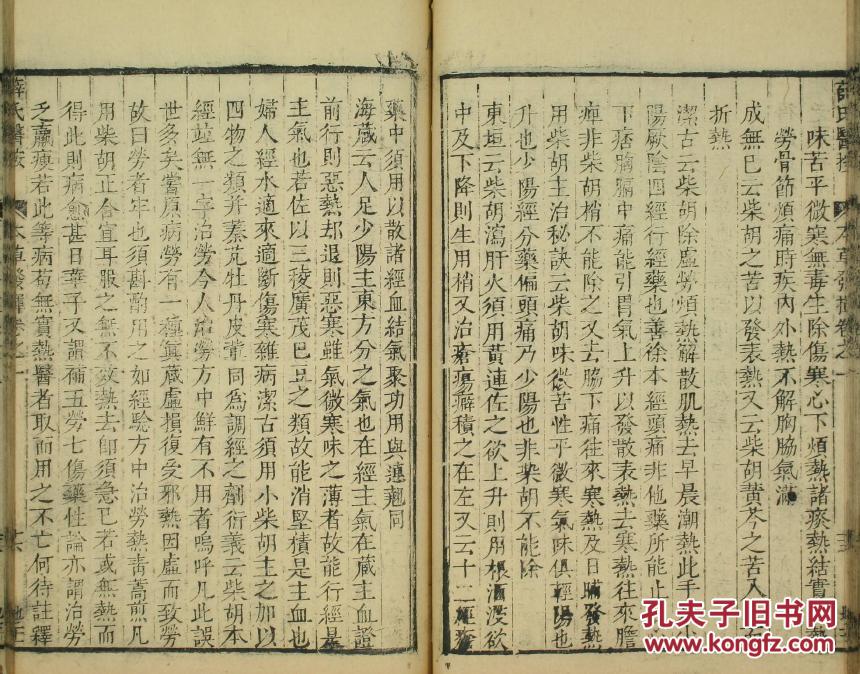 薛氏醫按
本草發揮卷之一
味苦平微寒無毒主除傷寒心下煩熱諸痰熱結實 熱
勞骨節煩痛時疾內外熱不解胸脇氣滿
成無已云柴胡之苦以發表熱又云柴胡黃芩之苦入
折熱
潔古云柴胡除虛勞煩熱解散肌熱去早晨潮熱此手 少
陽厥陰四經行經藥也善除本經頭痛非他藥所能止
下痞胸膈中痛能引胃氣上升以發散表熱去寒熱往來膽
痺非柴胡梢不能除之又去脇下痛往來寒熱及日晡發熱
用柴胡主治秘訣云柴胡味微苦性平微寒氣味俱輕陽也
升也少陽經分藥偏頭痛乃少陽也非柴胡不能除
東垣云柴胡瀉肝火須用黃連佐之欲上升則用根酒浸欲
中及下降則生用梢又治瘡瘍癖積之在左又云十二經瘡
藥中須用以散諸經血結氣聚功用與連翹同
海藏云人足少陽主東方分之氣也在經主氣在藏主血證
前行則惡熱却退則惡寒雖氣微寒味之薄者故能行經是
主氣也若佐以三稜廣茂巴豆之類故能消堅積是主血也
婦人經水適來適斷傷寒雜病潔古須用小柴胡主之加以
四物之類并蓁艽牡丹皮輩同為調經之劑衍義云柴胡本
經並無一字治勞今人治勞方中鮮有不用者嗚呼凡此誤
世多矣嘗原病勞有一種真藏虛損復受邪熱因虛而致勞
故曰勞者牢也須斟酌用之如經驗方中治勞熱青蒿煎凡
用柴胡正合宜耳服之無不效熱去即須急已若或無熱而
得此則病愈甚日華子又謂補五勞七傷藥性論亦謂治勞
乏羸瘦若此等病苟無實熱醫者取而用之不亡何待註釋
薛氏醫按
本草發揮卷之一
孔夫子旧书网
www.kongfz.com